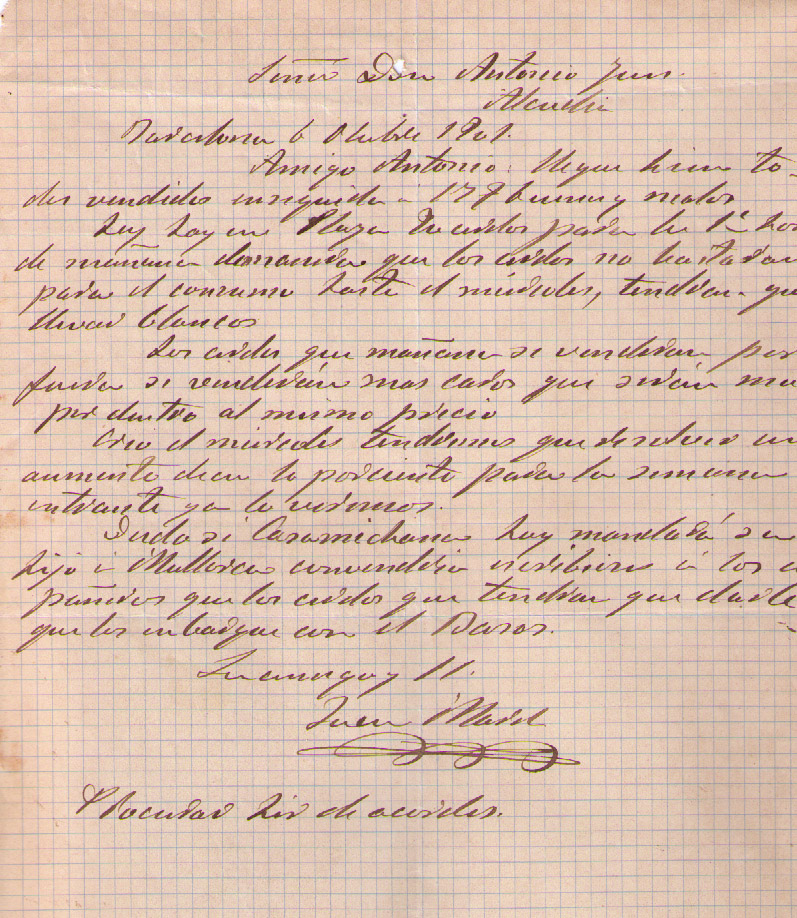 Señor Don Antonio
Alcudia
Barcelona 6 Octubre 1901.
Amigo Antonio: to-
dos vendidos enseguida á 17 buenos y malos
hoy hay en Plaza cerdos para la 1ª
de mañana demanda que los cerdos no bastaran
para el consumo hasta el miercoles, tendran que
llevar blancos
Los cerdos que mañana se venderan por
fuera se venderán mas caros que serán
por dentro al mismo precio
Creo el miercoles tendremos que resolver un
aumento de un porciento para la semana
entrante ya lo veremos.
Duda si Casamichana hoy mandará su
hijo á Mallorca convendria escribiera á los
pañeros que los cerdos que tendran que darle
que los embarque con el
Su amigo y
Juan
Procurar ir de acordes.